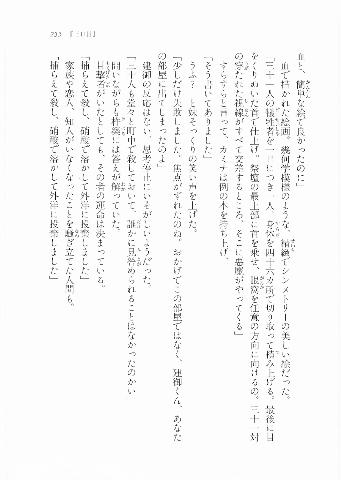 血と、簡単な絵で良かったのに」
血で描かれた絵画。幾何学模様のような、精緻でシンメトリーの美しい絵だった。
「三十一人の犠牲者を一日につき一人、身体を四十六カ所で切り取って積み上げる。最後に目
をくりぬいた首で仕上げ。祭壇の最上部に首を乗せ、眼窩を任意の方向に向ける。三十一対
の穿たれた視線がすべて交差するところ、そこに悪魔がやってくる」
すらすらと言って、カミナは例の本を持ち上げ、
「そう書いてありました」
うふ？ と妹そっくりの笑い声を上げた。
「少しだけ失敗しました。焦点がずれたのね。おかげでこの部屋ではなく、建御くん、あなた
の部屋に出てしまったのよ」
建御の反応はない。思考停止にいそがしいようだった。
「三十人も堂々と町中で殺しておいて、誰かに見咎められることはなかったのかい
問いながらも柊葵には答えが解っていた。
目撃者がいたとしても、その者の運命は決まっている。
「捕らえて殺し、硝酸で溶かして外洋に投棄しました」
家族や恋人、知人がいなくなったことを騒ぎ立てた人間も。
「捕らえて殺し、硝酸で溶かして外洋に投棄しました」